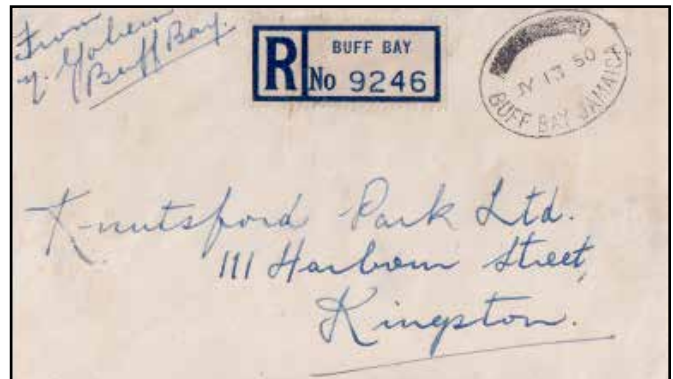 From
Buff Bay.
R
BUFF BAY
No 9246
13 50
BUFF BAY JAMAICA
Knutsford Park Ltd.
111 Harbour Street,
Kingston.